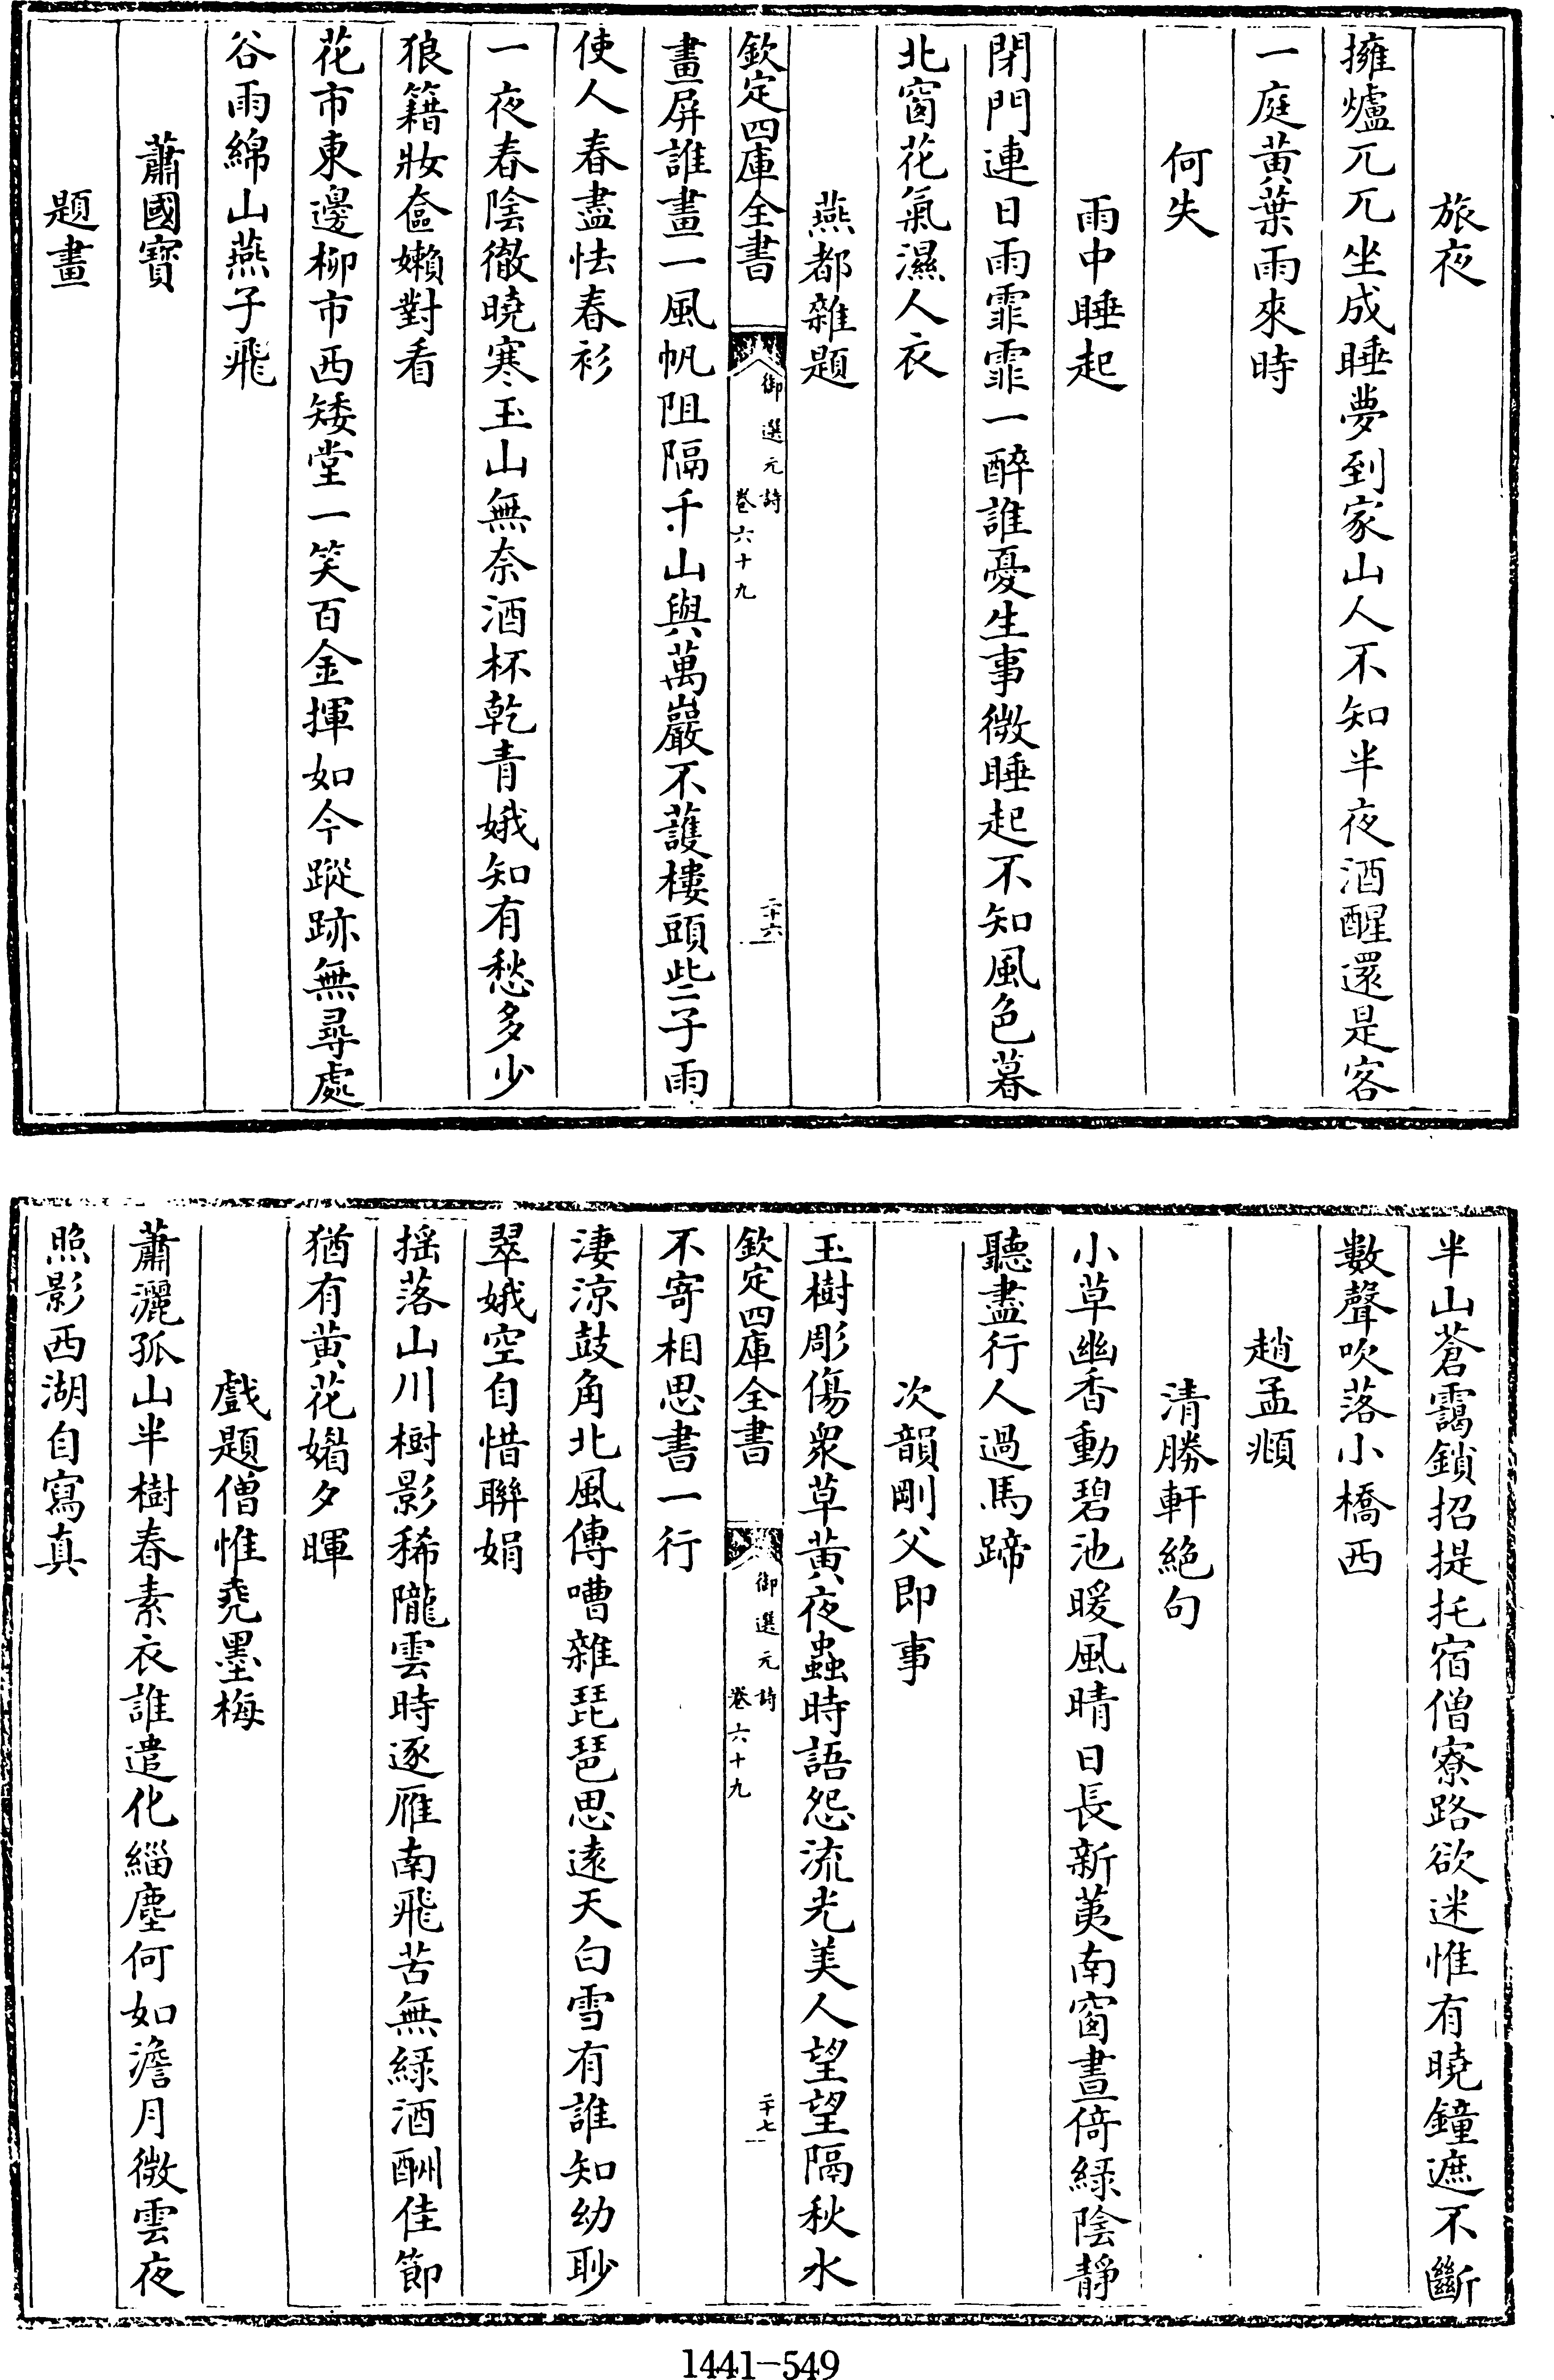 旅夜
擁爐兀兀坐成睡夢到家山人不知半夜酒醒還是客
一庭黄葉雨來時
何失
雨中睡起
閉門連日雨霏霏一醉誰憂生事微睡起不知風色暮
北窗花氣濕人衣
燕都雜題
欽定四庫全書
御選元詩
卷六十九
二十六
畫屏誰畫一風帆阻隔千山與萬巖不護樓頭些子雨
使人春盡怯春衫
一夜春陰徹曉寒玉山無奈酒杯乾青娥知有愁多少
狼籍妝奩嬾對看
花市東邊柳市西矮堂一笑百金揮如今蹤跡無尋處
谷雨綿山燕子飛
蕭國寳
題畫
半山蒼靄鎖招提托宿僧寮路欲迷惟有曉鐘遮不斷
數聲吹落小橋西
趙孟頫
清勝軒絶句
小草幽香動碧池暖風晴日長新荑南窗晝倚緑陰靜
聽盡行人過馬蹄
次韻剛父即事
玉樹彫傷衆草黄夜蟲時語怨流光美人望望隔秋水
欽定四庫全書
御選元詩
卷六十九
二十七
不寄相思書一行
淒涼鼓角北風傳嘈雜琵琶思遠天白雪有誰知幼眇
翠娥空自惜聯娟
揺落山川樹影稀隴雲時逐雁南飛苦無緑酒酬佳節
猶有黄花媚夕暉
戲題僧惟堯墨梅
蕭灑孤山半樹春素衣誰遣化緇塵何如澹月微雲夜
照影西湖自寫真
1441-549